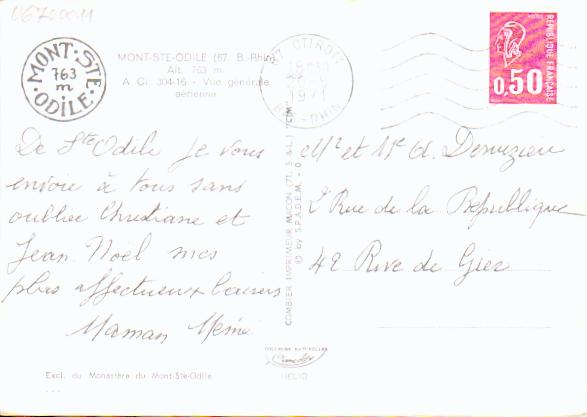 0670001
MONT-STE-ODILE
763
m
MONT-STE-ODILE (67 B.-Rhin)
Alt. 763 m.
A Ci. 304-16 - Vue générale
aérienne
67 OTTROTT
BAS-RHIN
POSTES
RÉPUBLIQUE FRANÇAISE
0,50
De Ste Odile je vous
envoie à tous sans
oublier Christiane et
Jean Noël mes
plus affectueux baisers
Maman Mémé
COMBIER IMPRIMEUR MACON (71. S.-&-L.) "CIM"
© by S.P.A.D.E.M.
Mr et Me A. Demuzieu
2 Rue de la République
42 Rive de Gier
Combier
HELIO
Excl. du Monastère du Mont-Ste-Odile
...